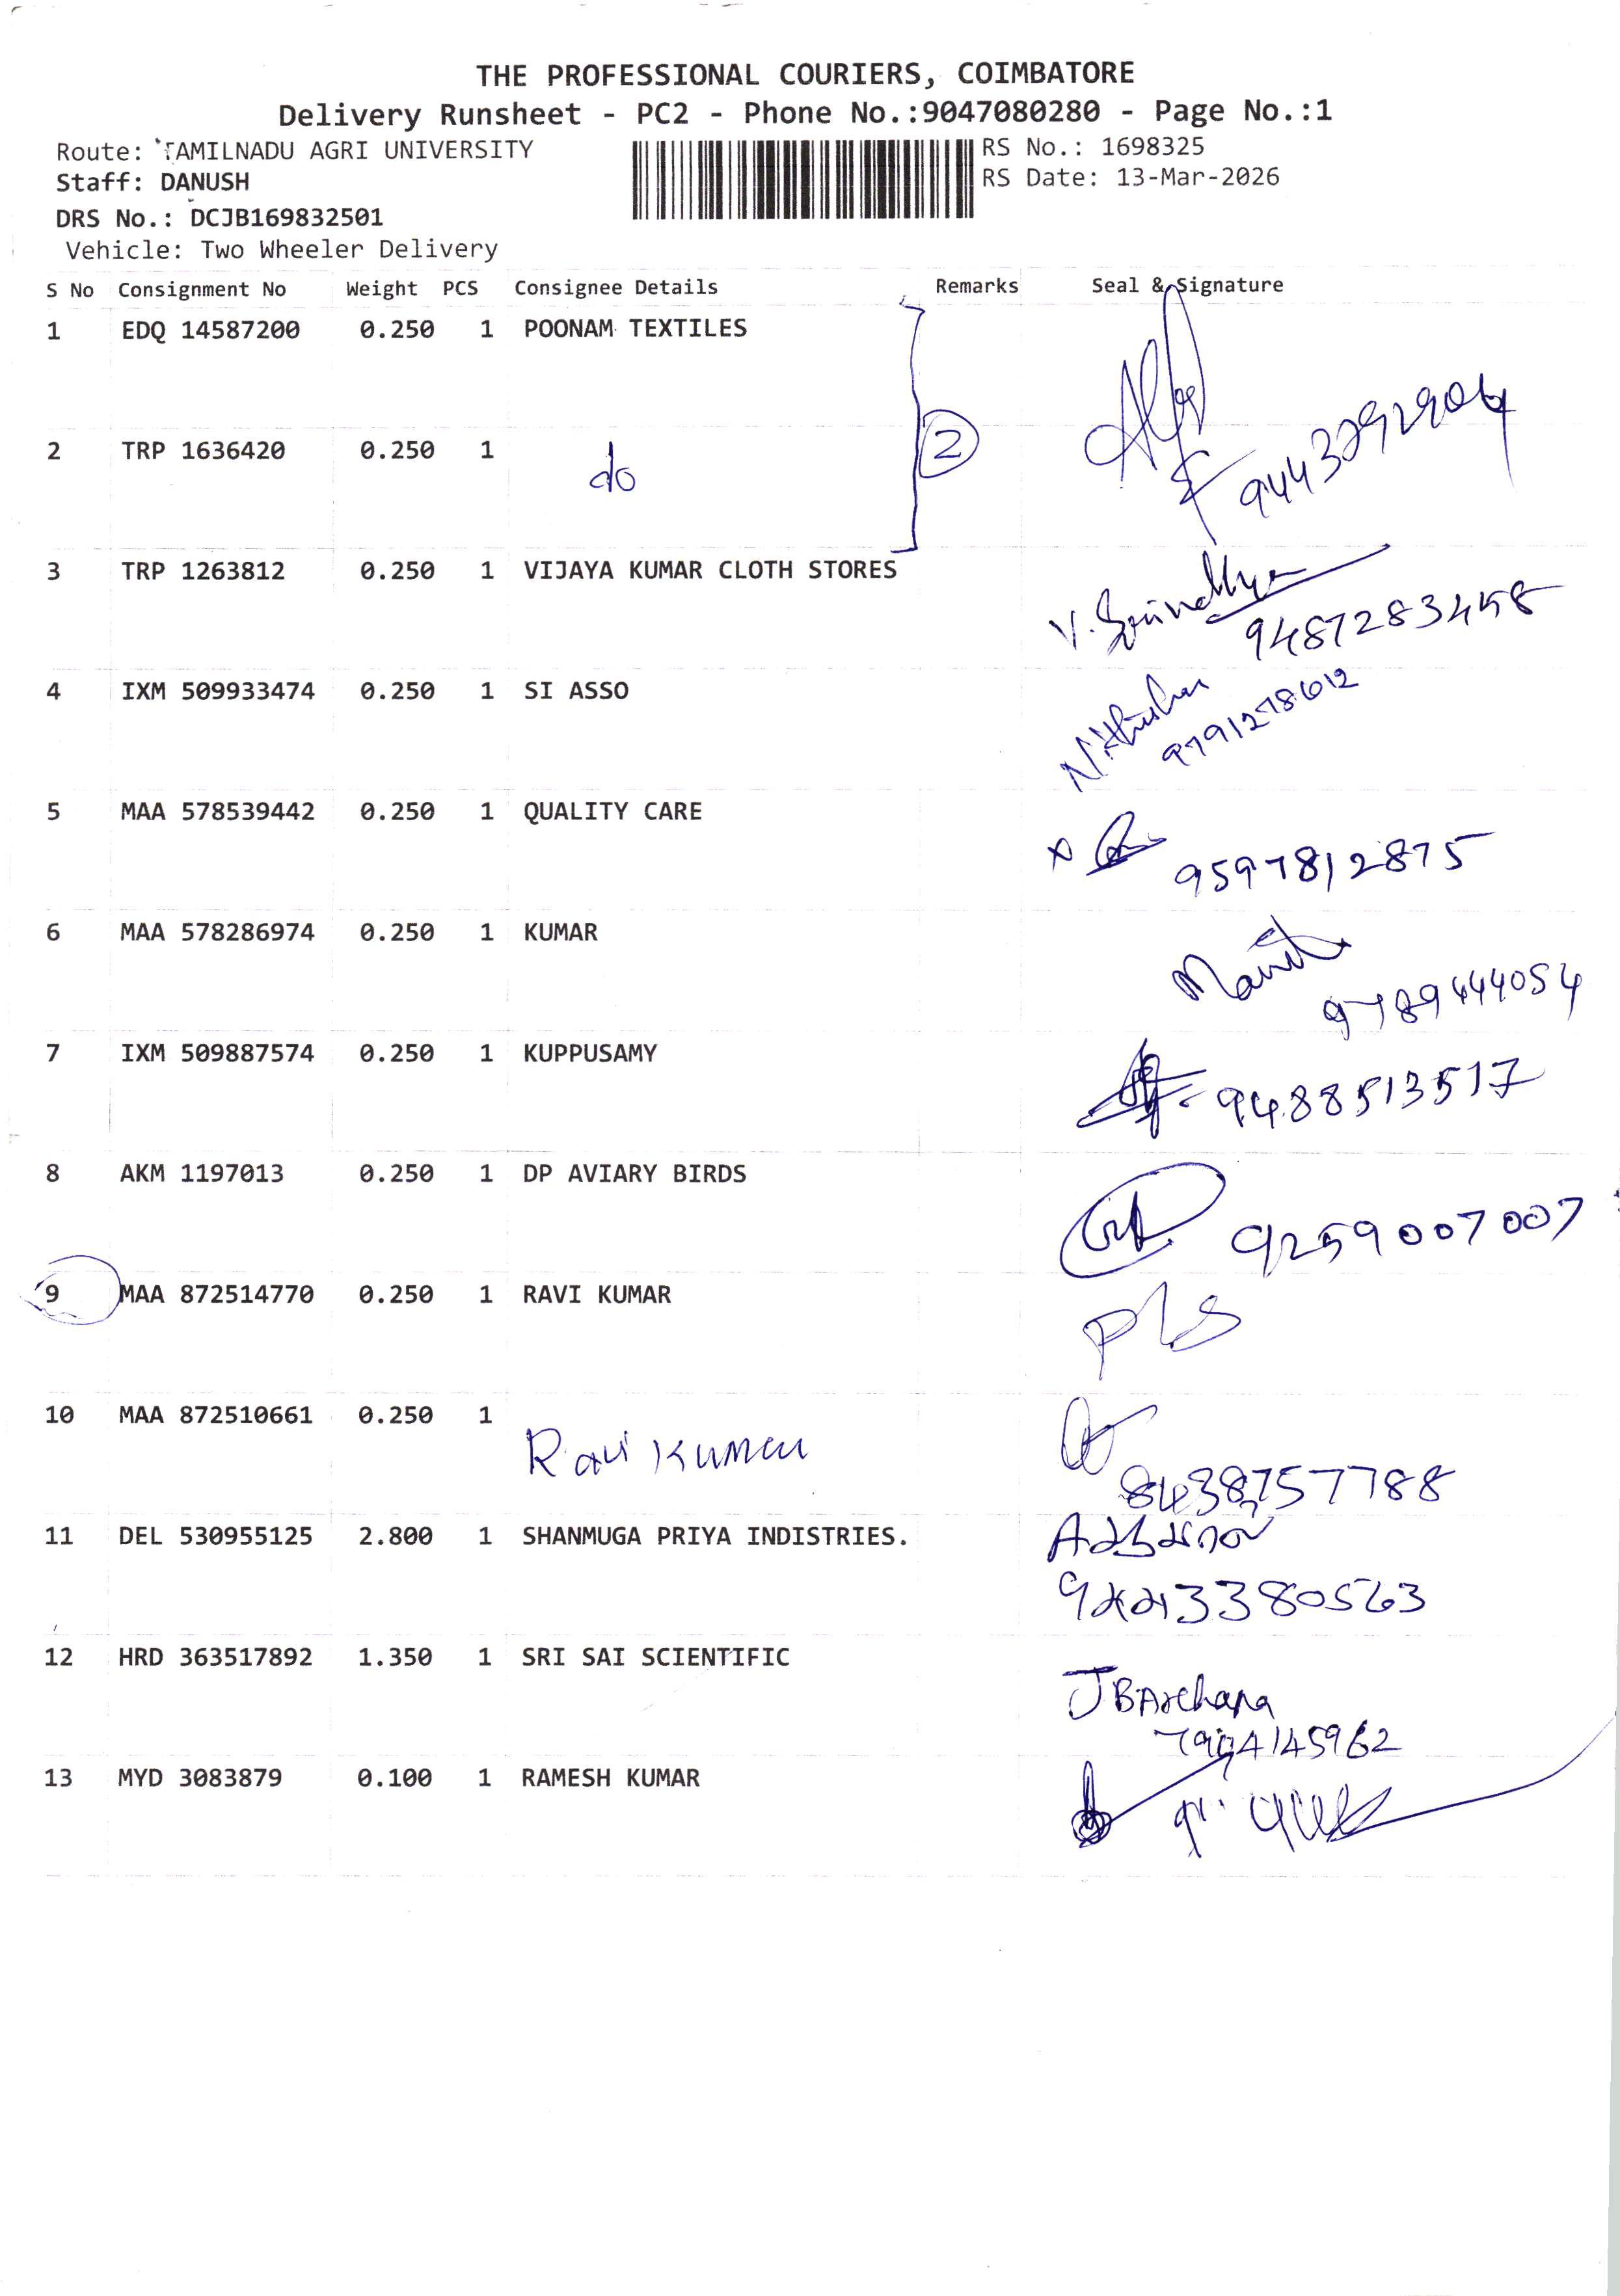 THE PROFESSIONAL COURIERS, COIMBATORE
Delivery Runsheet - PC2 - Phone No.:9047080280 - Page No.:1
Route: TAMILNADU AGRI UNIVERSITY
RS No.: 1698325
Staff: DANUSH
RS Date: 13-Mar-2026
DRS No.: DCJB169832501
Vehicle: Two Wheeler Delivery
S No Consignment No Weight PCS Consignee Details Remarks Seal & Signature
1 EDQ 14587200 0.250 1 POONAM TEXTILES
2 TRP 1636420 0.250 1 do 2
3 TRP 1263812 0.250 1 VIJAYA KUMAR CLOTH STORES
9487283458
4 IXM 509933474 0.250 1 SI ASSO
9791278612
5 MAA 578539442 0.250 1 QUALITY CARE
9597812875
6 MAA 578286974 0.250 1 KUMAR
9789444054
7 IXM 509887574 0.250 1 KUPPUSAMY
9488513517
8 AKM 1197013 0.250 1 DP AVIARY BIRDS
9259007007
9 MAA 872514770 0.250 1 RAVI KUMAR
pls
10 MAA 872510661 0.250 1 Ravi Kumar
8438757788
11 DEL 530955125 2.800 1 SHANMUGA PRIYA INDISTRIES.
12 HRD 363517892 1.350 1 SRI SAI SCIENTIFIC
JBArchana
13 MYD 3083879 0.100 1 RAMESH KUMAR